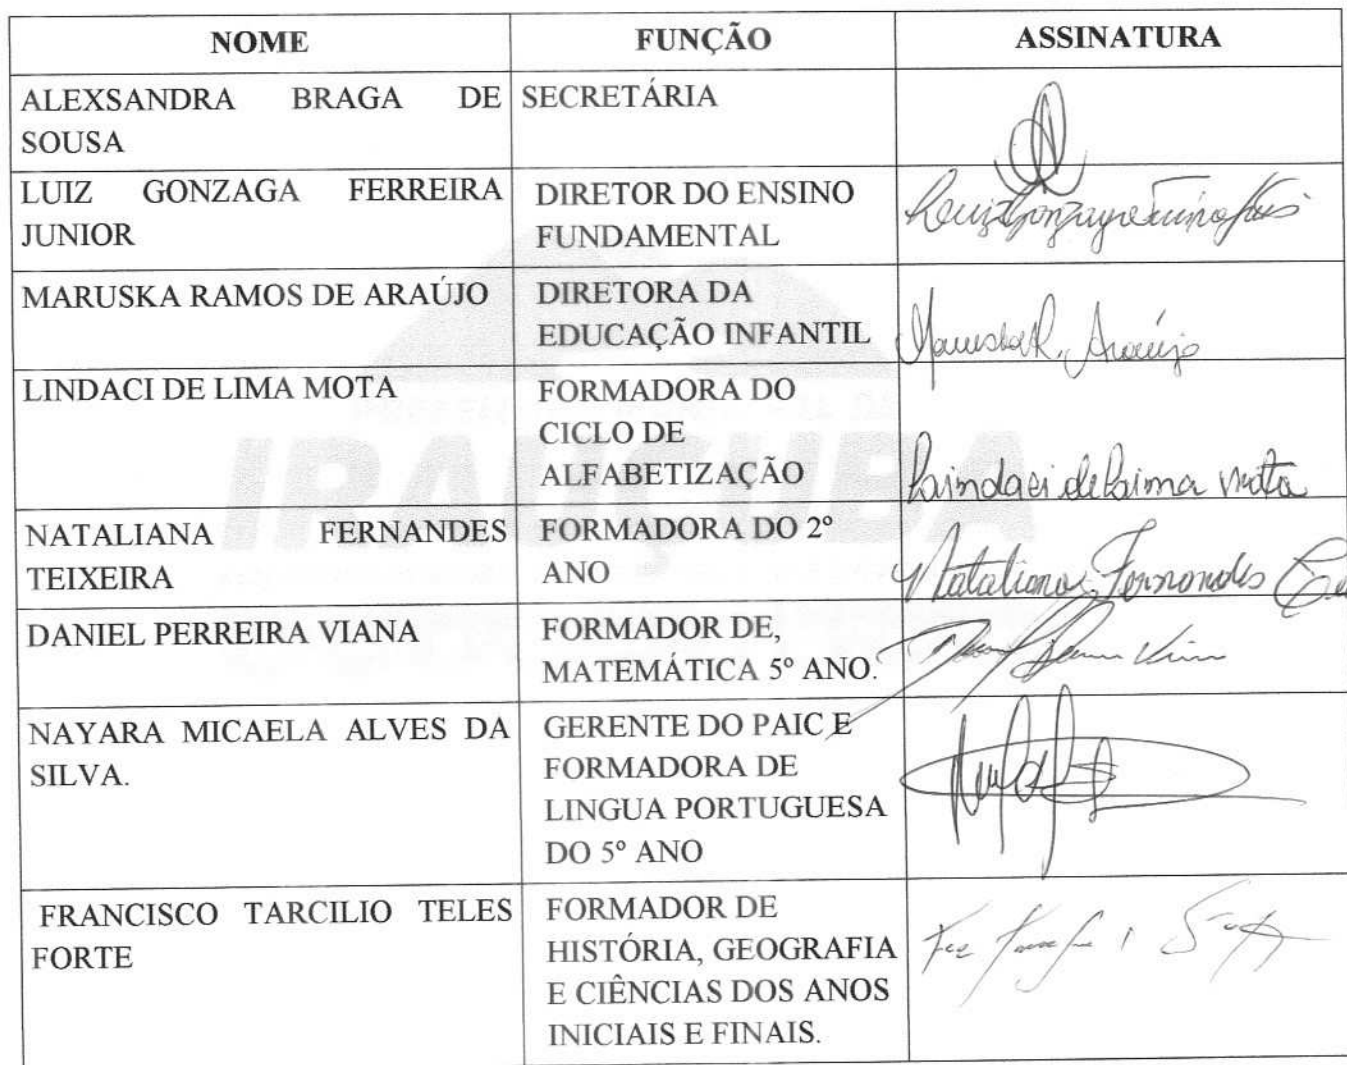 NOME FUNÇÃO ASSINATURA
ALEXSANDRA BRAGA DE SECRETÁRIA
SOUSA
LUIZ GONZAGA FERREIRA DIRETOR DO ENSINO Luiz Gonzaga
JUNIOR FUNDAMENTAL
MARUSKA RAMOS DE ARAÚJO DIRETORA DA
EDUCAÇÃO INFANTIL Maruska R. Araújo
LINDACI DE LIMA MOTA FORMADORA DO
CICLO DE
ALFABETIZAÇÃO Lindaci de Lima mota
NATALIANA FERNANDES FORMADORA DO 2º
TEIXEIRA ANO Nataliana Fernandes
DANIEL PERREIRA VIANA FORMADOR DE,
MATEMÁTICA 5º ANO.
NAYARA MICAELA ALVES DA GERENTE DO PAIC E
SILVA. FORMADORA DE
LINGUA PORTUGUESA
DO 5º ANO
FRANCISCO TARCILIO TELES FORMADOR DE
FORTE HISTÓRIA, GEOGRAFIA
E CIÊNCIAS DOS ANOS
INICIAIS E FINAIS.
IRAUÇUBA